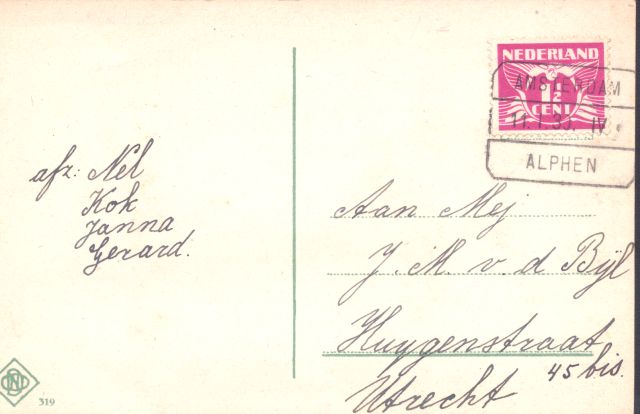 NEDERLAND
1½
CENT
AMSTERDAM
IV
ALPHEN
afz: Nel
Kok
Janna
Gerard.
Aan Mej
J. M. v. d Bijl
Huygenstraat
45 bis.
Utrecht
319